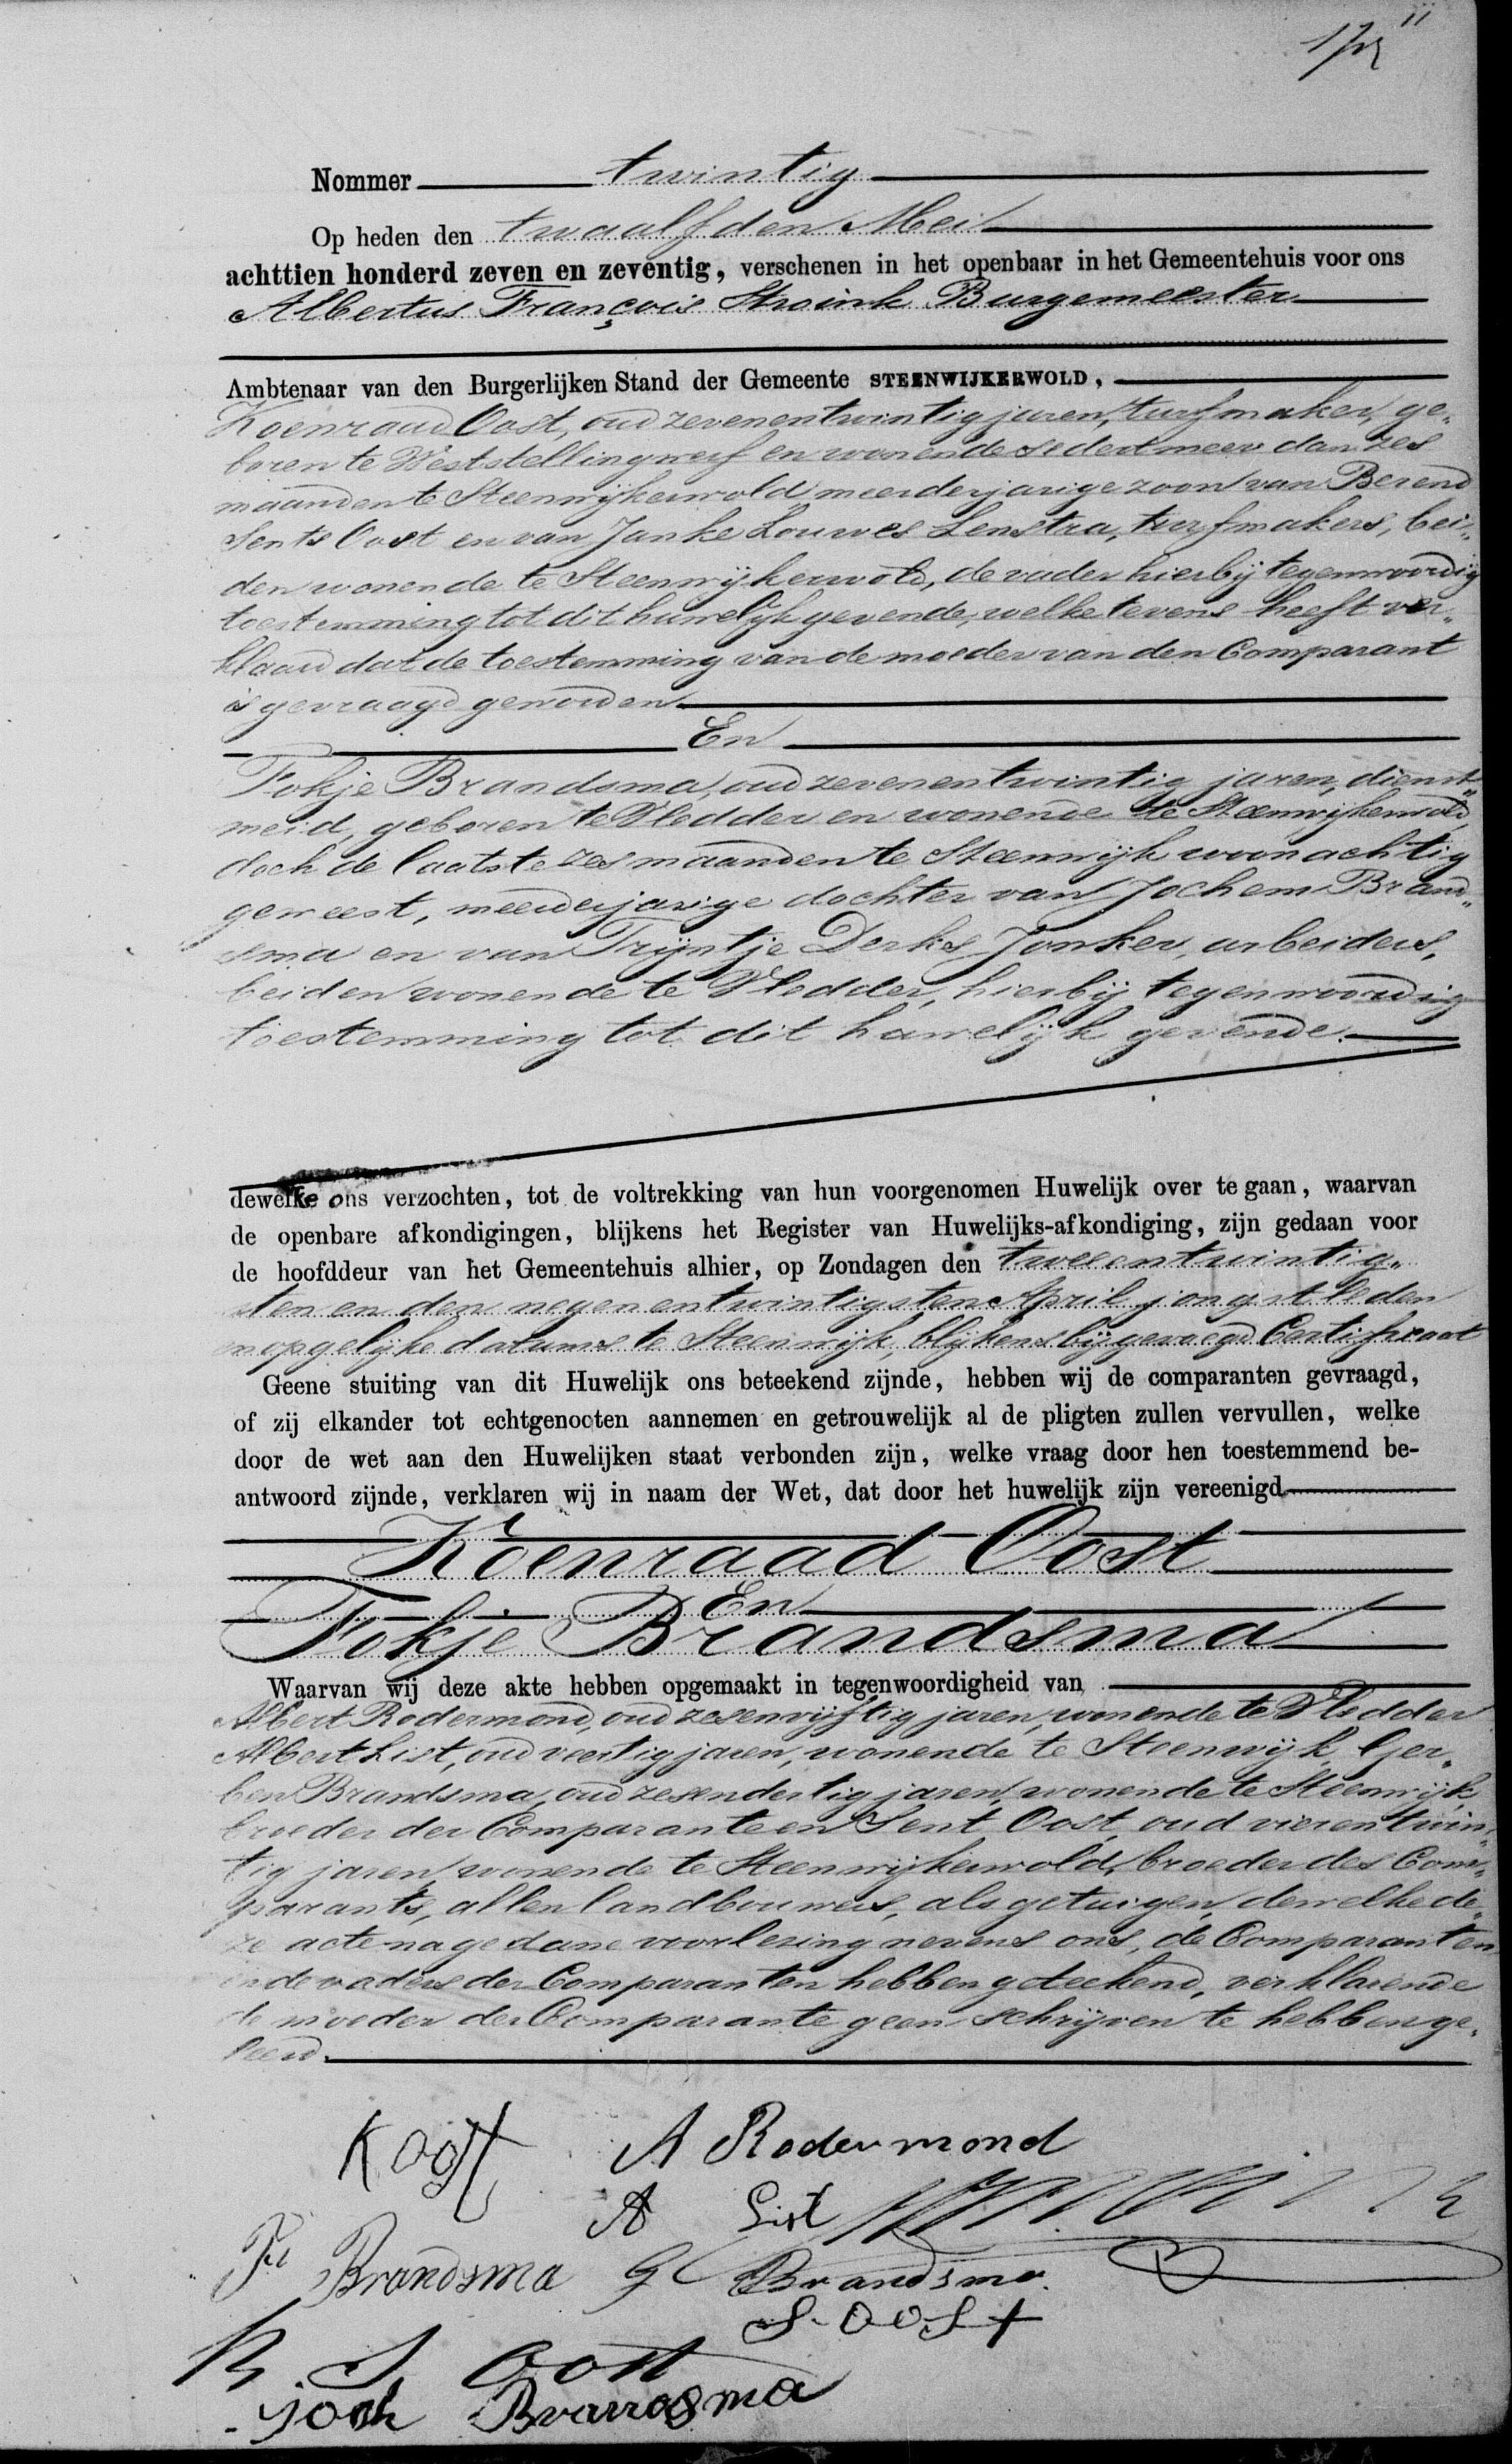 Nommer twintig
Op heden den twaalfden Mei
achttien honderd zeven en zeventig, verschenen in het openbaar in het Gemeentehuis voor ons
Albertus François Stroink Burgemeester
Ambtenaar van den Burgerlijken Stand der Gemeente STEENWIJKERWOLD,
Koenraad Oost, oud zevenentwintig jaren, turfmaker, ge„
boren te Weststellingwerf en wonende sedert meer dan zes
maanden te Steenwijkerwold, meerderjarige zoon van Berend
Sents Oost en van Janke Louwes Lenstra, turfmakers, bei„
den wonende te Steenwijkerwold, de vader hierbij tegenwoordig
toestemming tot dit huwelijk gevende, welke tevens heeft ver„
klaard dat de toestemming van de moeder van den Comparant
is gevraagd geworden.
En
Fokje Brandsma, oud zevenentwintig jaren, dienst„
meid, geboren te Vledder en wonende te Steenwijkerwold,
doch de laatste zes maanden te Steenwijk woonachtig
geweest, meerderjarige dochter van Jochem Brand„
sma en van Trijntje Derks Jonker, arbeiders,
beiden wonende te Vledder, hierbij tegenwoordig
toestemming tot dit huwelijk gevende.
dewelke ons verzochten, tot de voltrekking van hun voorgenomen Huwelijk over te gaan, waarvan
de openbare afkondigingen, blijkens het Register van Huwelijks-afkondiging, zijn gedaan voor
de hoofddeur van het Gemeentehuis alhier, op Zondagen den tweeentwintig„
sten en den negenentwintigsten April jongstleden
en op gelijke datums te Steenwijk, blijkens bijgevoegd Certificaat
Geene stuiting van dit Huwelijk ons beteekend zijnde, hebben wij de comparanten gevraagd,
of zij elkander tot echtgenooten aannemen en getrouwelijk al de pligten zullen vervullen, welke
door de wet aan den Huwelijken staat verbonden zijn, welke vraag door hen toestemmend be-
antwoord zijnde, verklaren wij in naam der Wet, dat door het huwelijk zijn vereenigd
Koenraad Oost
En
Fokje Brandsma
Waarvan wij deze akte hebben opgemaakt in tegenwoordigheid van
Albert Rodermond, oud zesenvijftig jaren, wonende te Vledder
Albert List, oud veertig jaren, wonende te Steenwijk, Ger„
ben Brandsma, oud zesendertig jaren, wonende te Steenwijk,
broeder der Comparante en Sent Oost, oud vierentwin„
tig jaren, wonende te Steenwijkerwold, broeder des Com„
parants, allen landbouwers, als getuigen, dewelke de„
ze acte na gedane voorlezing nevens ons, de Comparanten
en de vaders der Comparanten hebben geteekend, verklarende
de moeder der Comparante geen schrijven te hebben ge„
leerd.
K Oost A Rodermond
A List
F Brandsma G Brandsma
S. Oost
B. S. Oost
Joch Brandsma